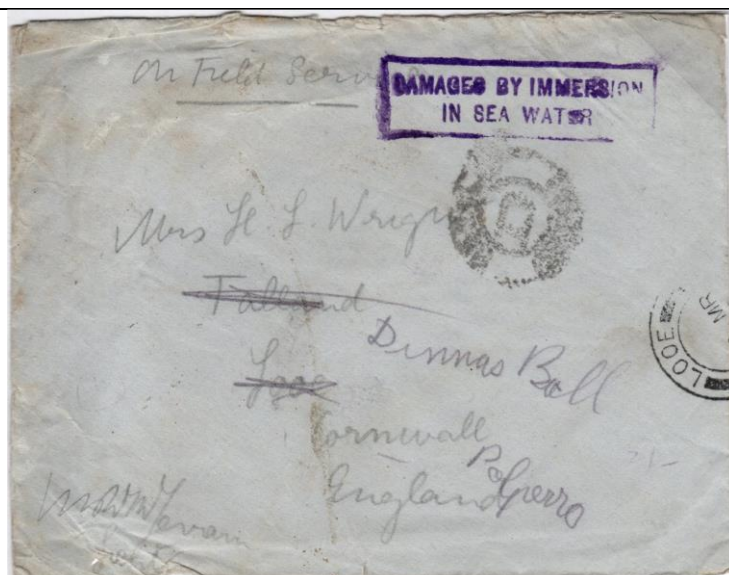 On Field Service
DAMAGED BY IMMERSION
IN SEA WATER
Mrs H. L. Wright
Talland
Dinnas Ball
Looe
Cornwall
England
Polperro
LOOE
MR